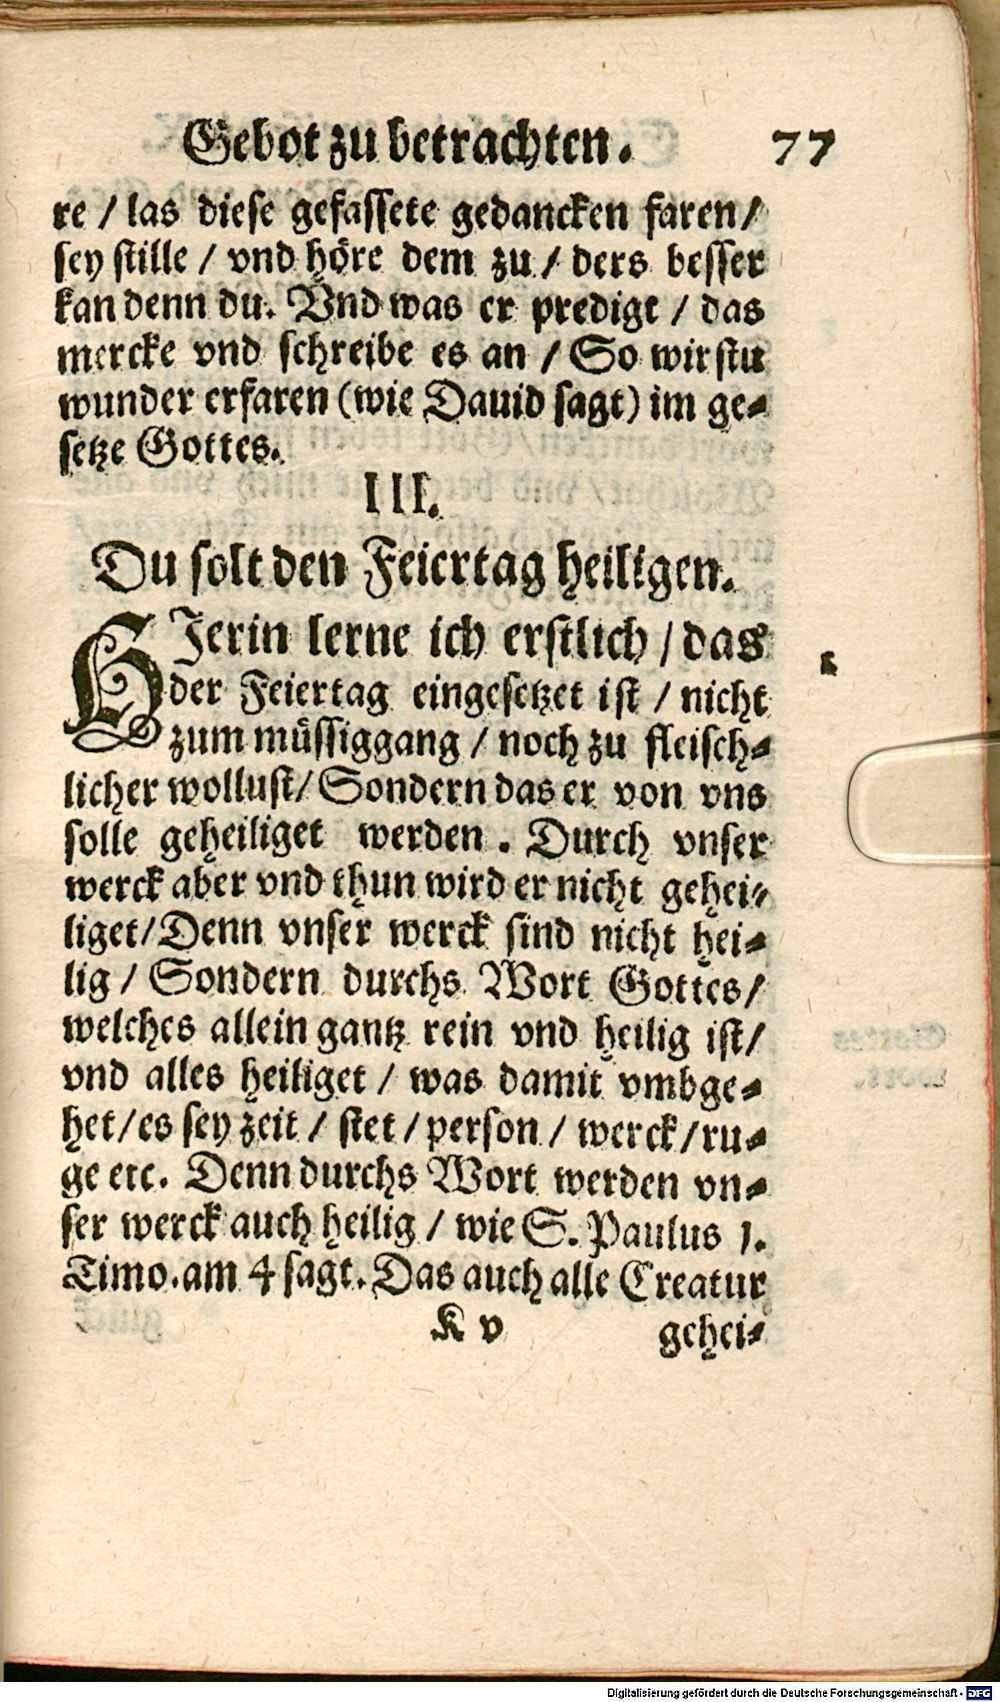 Gebot zu betrachten. 77
re / las diese gefassete gedancken faren /
sey stille / vnd höre dem zu / ders besser
kan denn du. Vnd was er predigt / das
mercke vnd schreibe es an / So wirstu
wunder erfaren (wie Dauid sagt) im ge-
setze Gottes.
III.
Du solt den Feiertag heiligen.
HJerin lerne ich erstlich / das
der Feiertag eingesetzet ist / nicht
zum müssiggang / noch zu fleisch-
licher wollust / Sondern das er von vns
solle geheiliget werden. Durch vnser
werck aber vnd thun wird er nicht gehei-
liget / Denn vnser werck sind nicht hei-
lig / Sondern durchs Wort Gottes /
welches allein gantz rein vnd heilig ist /
vnd alles heiliget / was damit vmbge-
het / es sey zeit / stet / person / werck / ru-
ge etc. Denn durchs Wort werden vn-
ser werck auch heilig / wie S. Paulus 1.
Timo. am 4 sagt. Das auch alle Creatur
K v gehei-
Digitalisierung gefördert durch die Deutsche Forschungsgemeinschaft - DFG